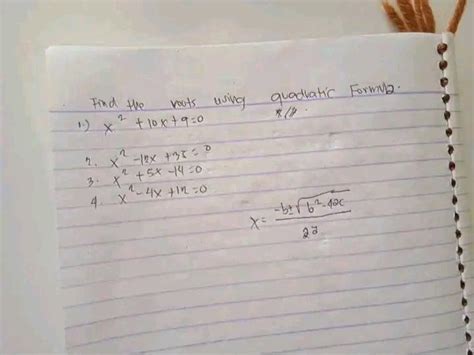 Find the roots using quadratic Formula.
1.) x² + 10x + 9 = 0
2. x² - 12x + 35 = 0
3. x² + 5x - 14 = 0
4. x² - 4x + 12 = 0
x = -b±√b²-4ac
2a